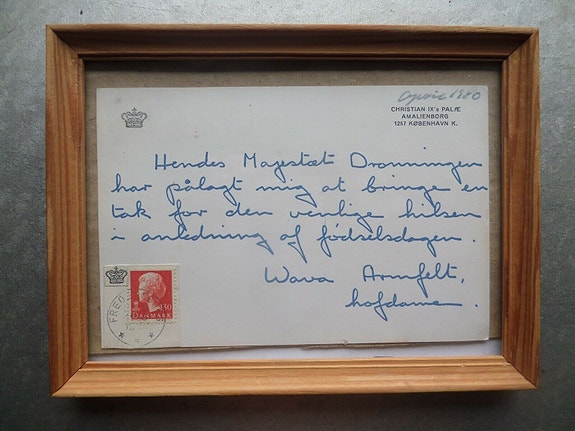 1980
CHRISTIAN IX's PALÆ
AMALIENBORG
1257 KØBENHAVN K.
Hendes Majestæt Dronningen
har pålagt mig at bringe en
tak for den venlige hilsen
i anledning af fødselsdagen.
Wava Armfelt,
hofdame.
130
DANMARK
FRED